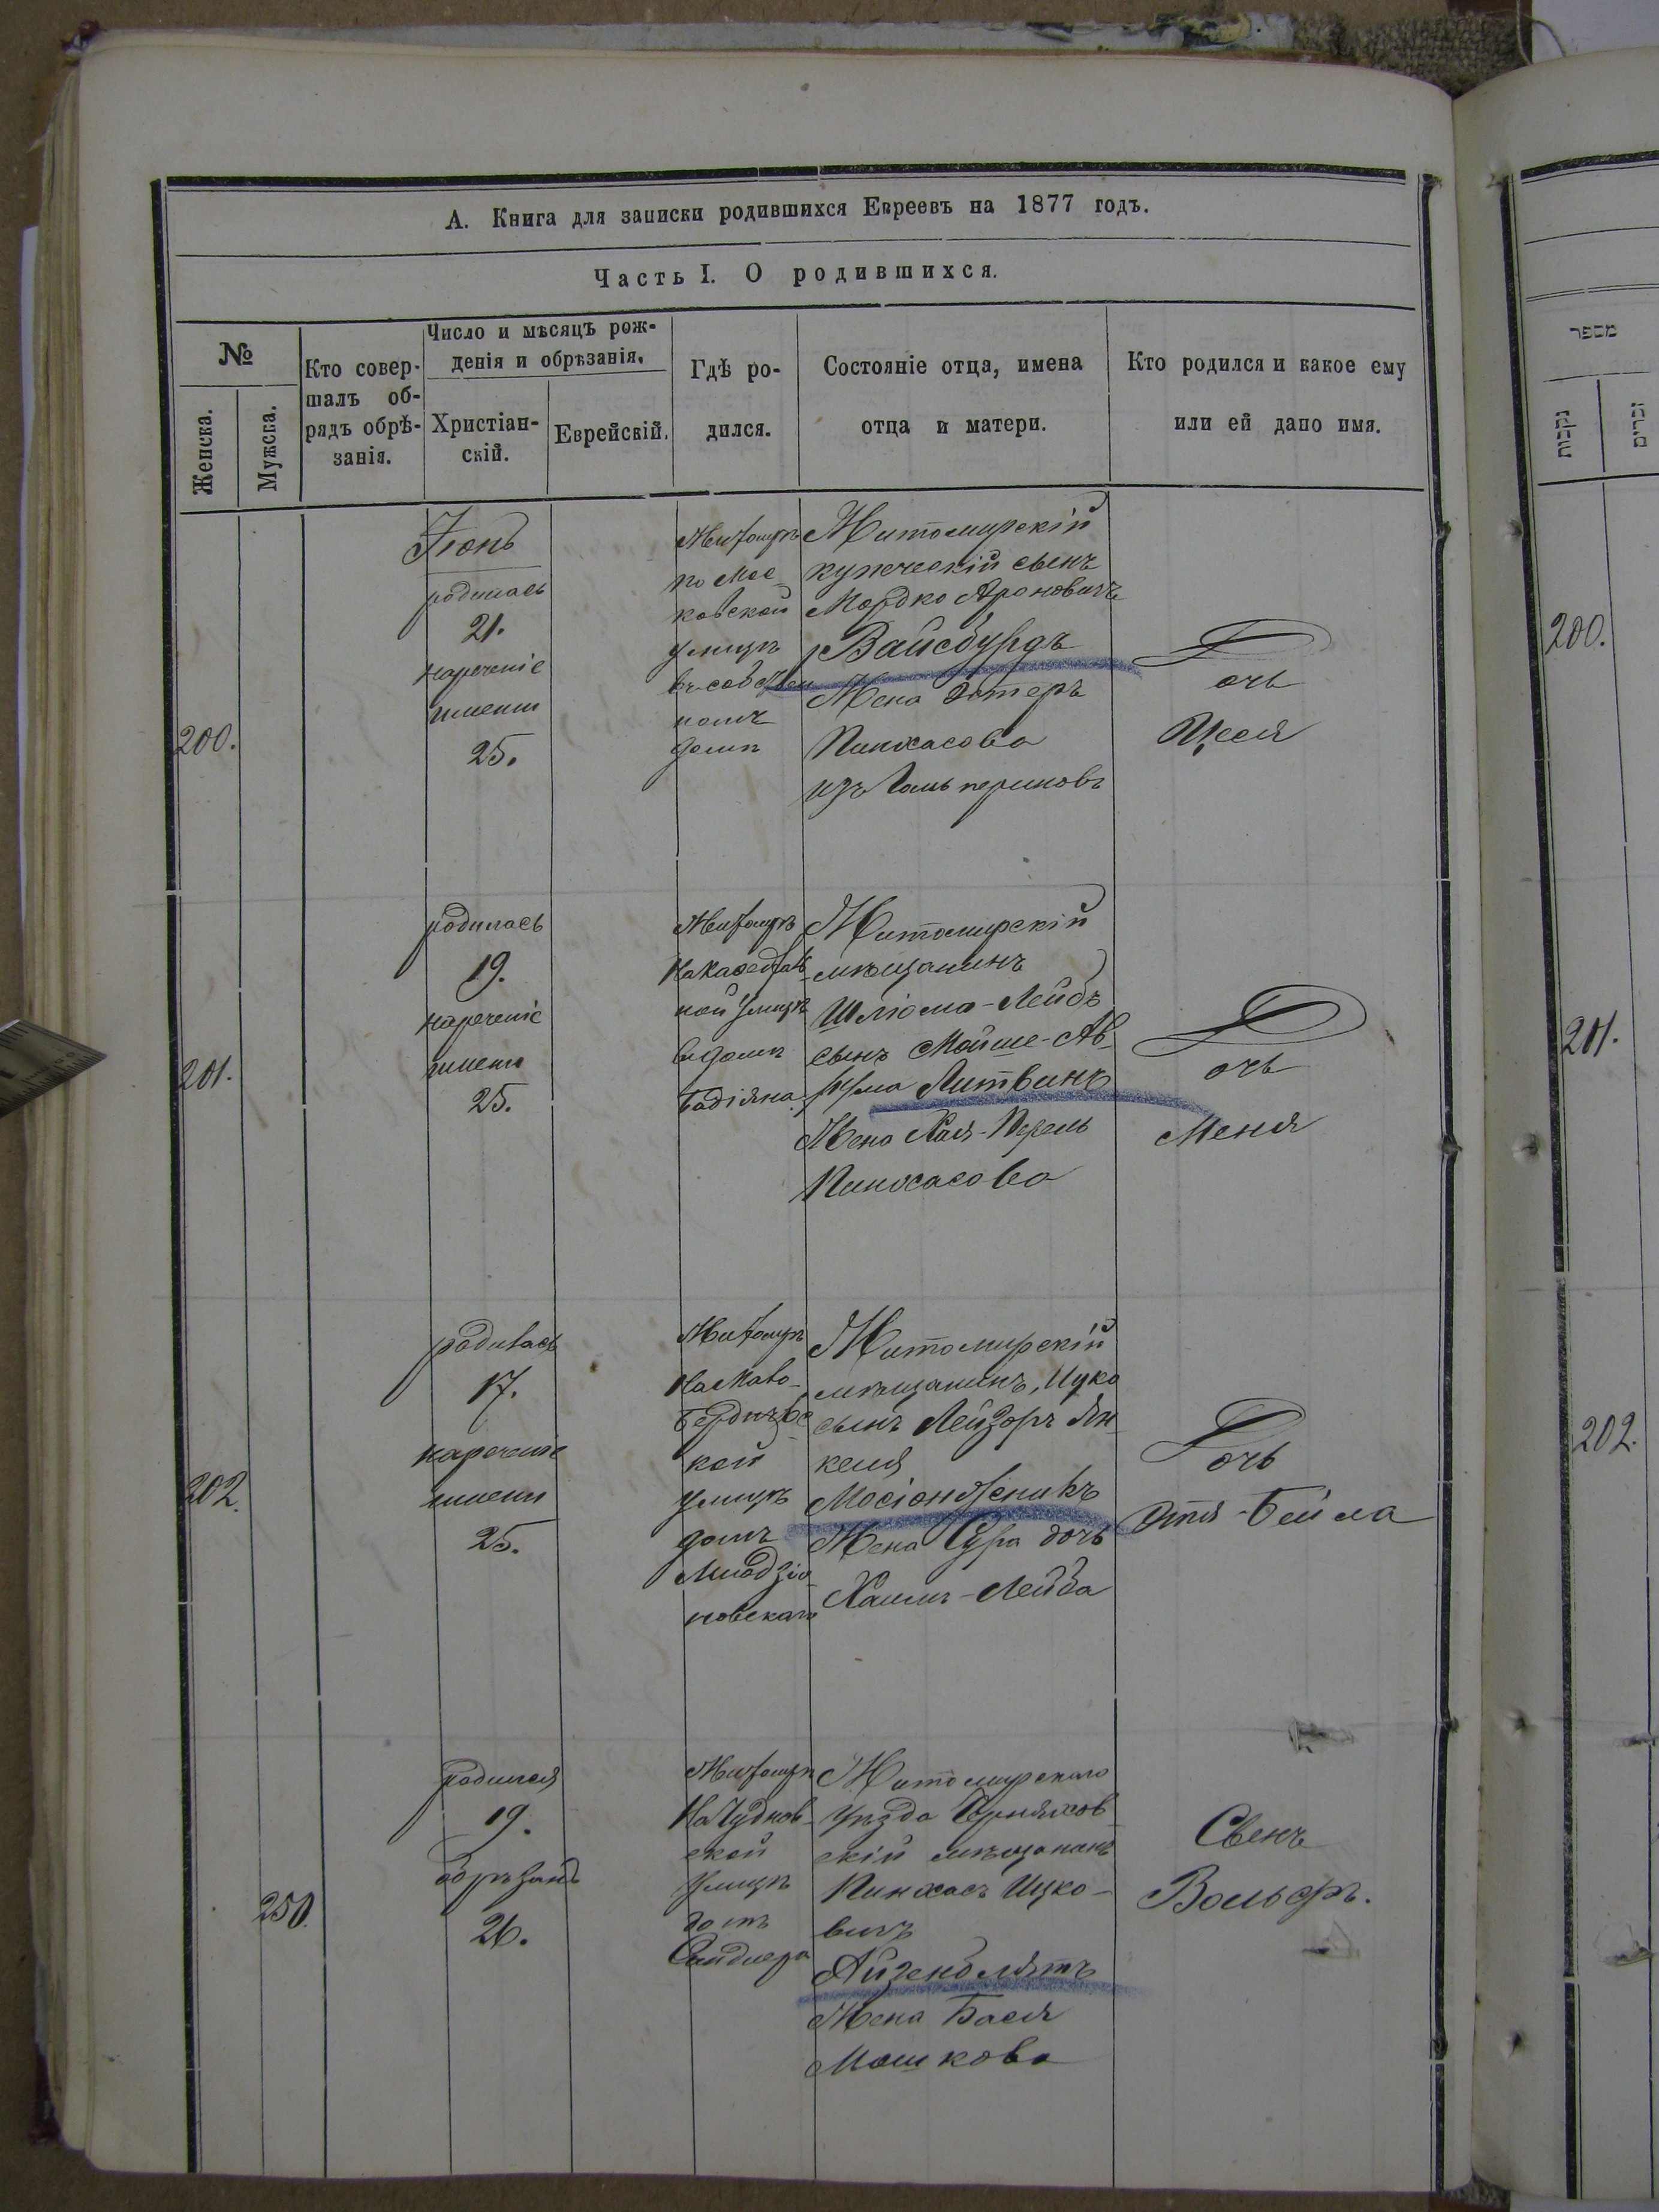 А. Книга для записки родившихся Евреевъ на 1877 годъ.
Часть I. О родившихся.
№
Женска.
Мужска.
Кто совер-
шалъ об-
рядъ обрѣ-
занія.
Число и мѣсяцъ рож-
денія и обрѣзанія.
Христіан-
скій.
Еврейскій.
Гдѣ ро-
дился.
Состояніе отца, имена
отца и матери.
Кто родился и какое ему
или ей дано имя.
200.
Іюнь
родилась
21.
нареченіе
имени
25.
Житомиръ
по Мос-
ковской
улицѣ
въ собствен
номъ
домѣ
Житомирскій
купческій сынъ
Мордко Ароновичъ
Вайсбурдъ
Жена Эстеръ
Пинхасова
изъ Гальпериновъ
Дочь
Цеся
201.
родилась
19.
нареченіе
имени
25.
Житомиръ
на Кафедраль
ной улицѣ
въ домѣ
Бадіяна
Житомирскій
мѣщанинъ
Шліома-Лейбъ
сынъ Мойше-Ав-
рума Литвинъ
Жена Хая-Перель
Пинхасова
Дочь
Меня
202.
родилась
17.
нареченіе
имени
25.
Житомиръ
на Мало-
Бердичевс
кой
улицѣ
домъ
Млодзіо-
новскаго
Житомирскій
мѣщанинъ, Ицко
сынъ Лейзоръ Ян-
келя
Мосіонзеникъ
Жена Сура дочь
Хаимъ-Лейба
Дочь
Этя-Бейла
250.
родился
19.
обрѣзанъ
26.
Житомиръ
На Чуднов-
ской
улицѣ
домъ
Сандлера
Житомирскаго
уѣзда Черняхов-
скій мѣщанинъ
Пинхасъ Ицко-
вичъ
Айзенблятъ
Жена Бася
Мошкова
Сынъ
Вольфъ.
מספר
נקבות
זכרים
200.
201.
202.